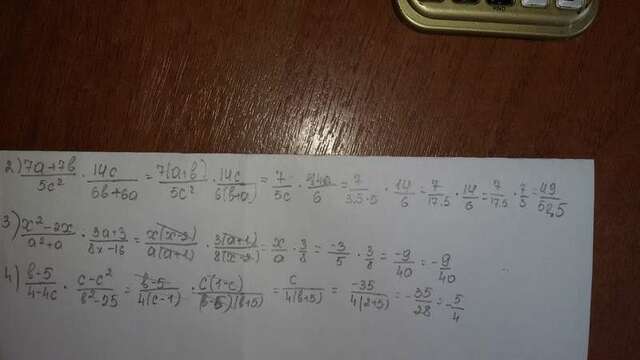 2) 7a+7b/5c² · 14c/6b+6a = 7(a+b)/5c² · 14c/6(b+a) = 7/5c · 14/6 = 7/3.5·5 · 14/6 = 7/17.5 · 14/6 = 7/17.5 · 7/5 = 49/52,5
3) x²-2x/a²+a · 3a+3/8x-16 = x(x-2)/a(a+1) · 3(a+1)/8(x-2) = x/a · 3/8 = -3/5 · 3/8 = -9/40 = -9/40
4) b-5/4-4c · c-c²/b²-25 = b-5/4(c-1) · c(1-c)/(b-5)(b+5) = c/4(b+5) = -35/4(2+5) = -35/28 = -5/4